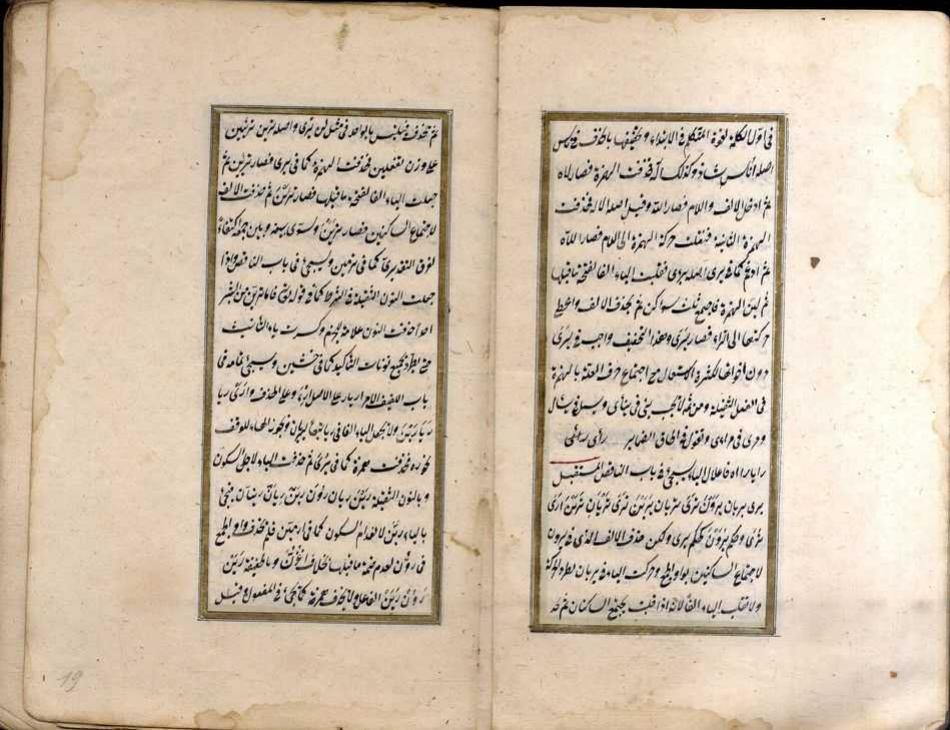 في اول الكلمة لقوة المتكلم في الابتداء وتخفيفها بالحذف في ناس
اصله اناس شاذ وكذلك اله فحذفت الهمزة فصار لاه
ثم ادخل الالف واللام فصار الله وقيل اصله الاله فحذفت
الهمزة الثانية فنقلت حركة الهمزة الى اللام فصار اللاه
ثم ادغم كما في يرى اصله يرءى فقلبت الياء الفا لفتحة ما قبلها
ثم لين الهمزة فاجتمع ثلث سواكن ثم بحذف الالف واعطي
حركتها الى الراء فصار يرى وهذا التخفيف واجب في يرى
دون اخواتها لكثرة الاستعمال مع اجتماع حرف العلة بالهمزة
في الفعل الثقيلة ومن ثمه لا يجب ينى في يناى ويسل في يسال
ومرى في مراى وتقول في الحاق الضماير رأى رأيا
اعلال الياء سيجئ في باب الناقص المستقبل
يرى يريان يرون ترى تريان يرين ترى تريان ترين ارى
نرى وحكم يرون كحكم يرى ولكن حذف الالف الذي في يرون
لاجتماع الساكنين بواو الجمع وحركت الياء في يريان لطرد الحركة
ولا تقلب الياء الفا لانه اذا قلبت يجتمع الساكنان ثم يحذف
ثم تحذف فيلتبس بالواحد في مثل لن يرى واصله ترين ترئيين
على وزن تفعلين فحذفت الهمزة كما في يرى فصار تريين ثم
جعلت الياء الفا لفتحة ما قبلها فصار ترين ثم حذفت الالف
لاجتماع الساكنين فصار ترين وسوى بينه وبين جمعه اكتفاء
لفرق التقديري كما في ترمين وسيجئ في باب الناقص واذا
جعلت النون الثقيلة في الشرط كما في قوله تعالى فاما ترين من البشر
احدا حذفت النون علامة للجزم وكسرت ياء التانيث
حتى يطرد بجميع نونات التاكيد كما في اخشين وسيجئ تمامه في
باب اللفيف الامر
ولا تجعل الياء الفا في ريا تبعا ليريان وتجوز بهاء الوقف
فحذفت همزة كما في يرى ثم حذفت الياء لاجل السكون
وبالنون الثقيلة رين ريان رون رين ريان رينان يجئ
بالياء رين لانعدام السكون كما في ارمين فلم يحذف واو الجمع
في رون لعدم ضمة ما قبلها بخلاف اغزن وبالخفيفة رين
رون رين الفاعل ولا تحذف همزته كما يجئ في المفعول وقيل
19